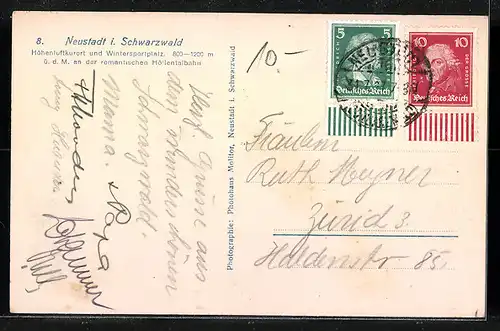 8. Neustadt i. Schwarzwald
Höhenluftkurort und Wintersportplatz. 800—1200 m
ü. d. M. an der romantischen Höllentalbahn
10.-
Herzl. Grüsse aus
dem wunderschönen
Schwarzwald.
Mama. & Papa
Photographie: Photohaus Molitor, Neustadt i. Schwarzwald
5
Deutsches Reich
10
Deutsches Reich
Fräulein
Ruth Meyner
Zürich 3.
Haldenstr. 85.